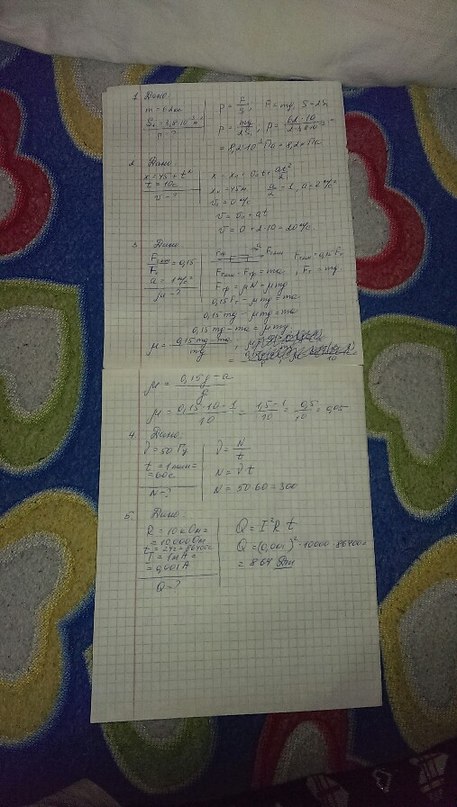 1. Дано:
m = 62кг
P - ?
P = F/S ; F = mg, S = 2S₁
P = mg/2S₁ ; P = 62·10/2·3,8·10⁻² =
2. Дано:
x = 45 + t²
t = 10с
v - ?
x = x₀ + v₀t + at²/2
x₀ = 45м a/2 = 1, a = 2 м/с²
v₀ = 0 м/с
v = v₀ + at
v = 0 + 2·10 = 20 м/с
3. Дано:
Fтяги/Fт = 0,15
a = 1 м/с²
μ - ?
Fтр Fтяги Fтяги = 0,15 Fт
Fтяги - Fтр = ma , Fт = mg
Fтр = μN = μmg
0,15Fт - μmg = ma
0,15mg - μmg = ma
0,15mg - ma = μmg
μ = 0,15mg - ma/mg
μ = 0,15g - a/g
μ = 0,15·10 - 1/10 = 1,5 - 1/10 = 0,5/10 = 0,05
4. Дано:
ν = 50 Гц
t = 1 мин =
= 60с
N - ?
ν = N/t
N = νt
N = 50·60 = 300
5. Дано:
R = 10кОм =
= 10000Ом
t = 24ч = 86400с
I = 1мА =
= 0,001А
Q - ?
Q = I²Rt
Q = (0,001)²·10000·86400 =
= 864 Дж